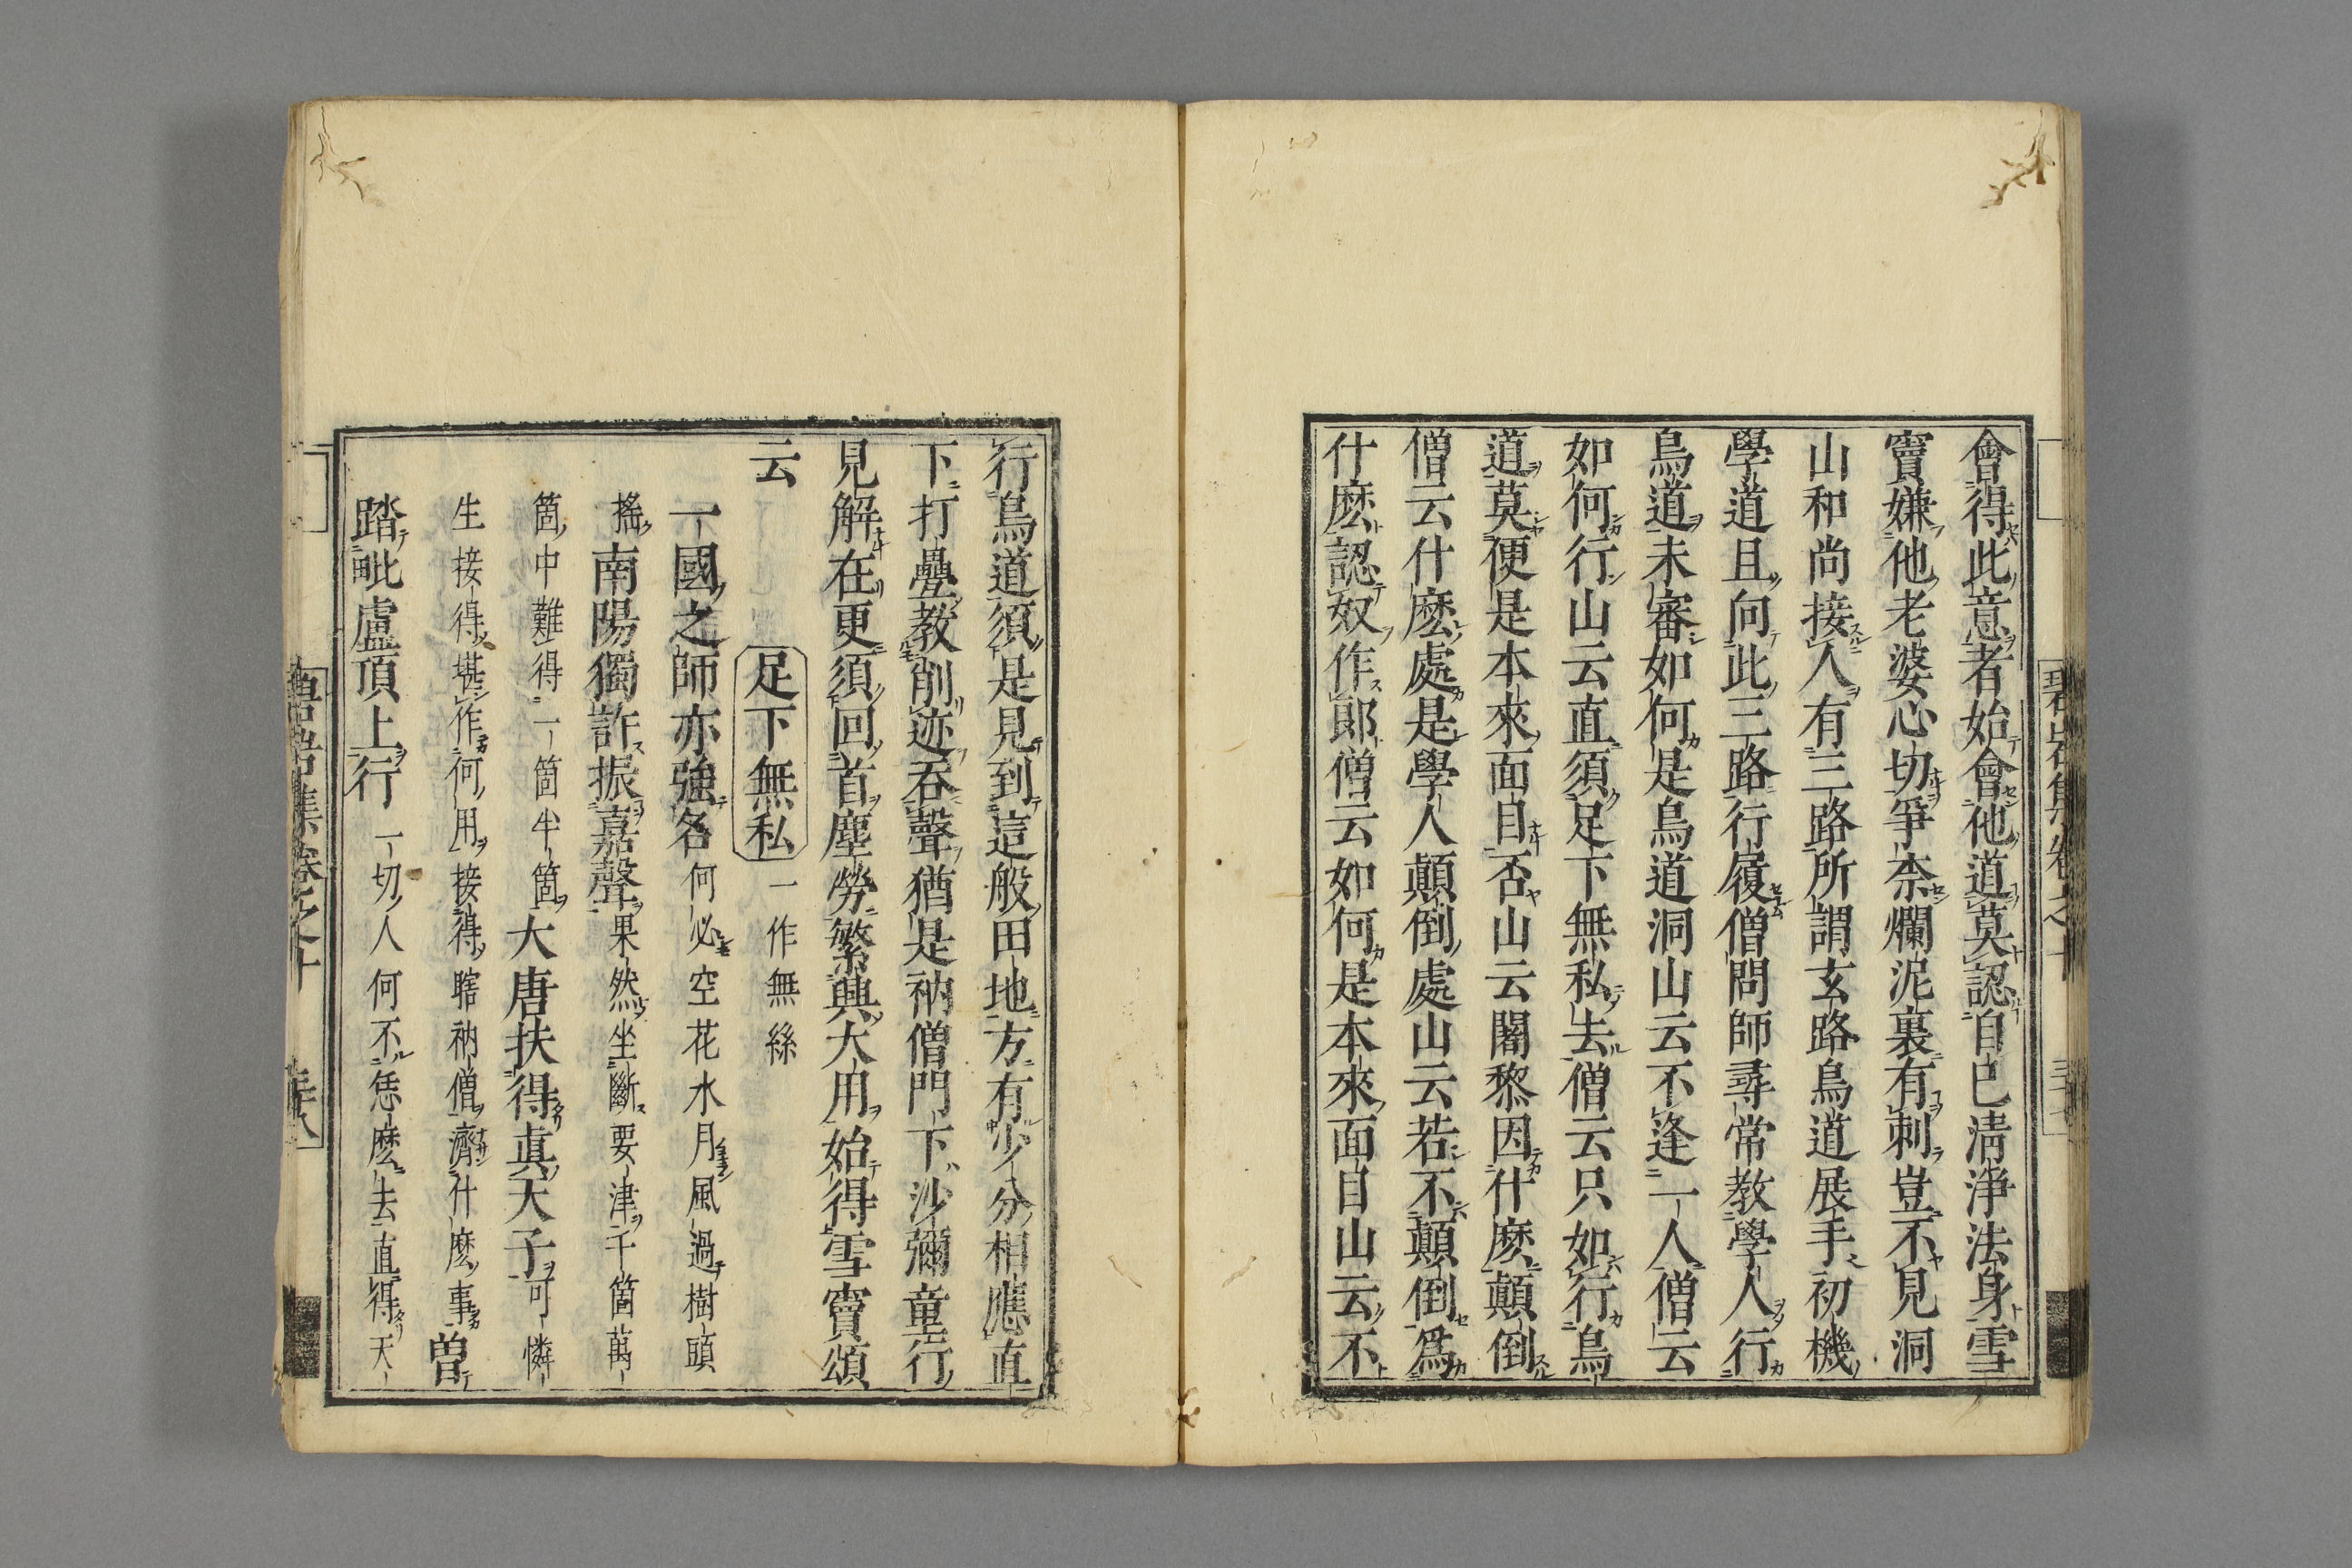 會得此意者始會他道莫認自已清淨法身雪
竇嫌他老婆心切爭柰爛泥裏有刺豈不見洞
山和尚接人有三路所謂玄路鳥道展手初機
學道且向此三路行履僧問師尋常教學人行
鳥道未審如何是鳥道洞山云不逢一人僧云
如何行山云直須足下無私去僧云只如行鳥
道莫便是本來面目否山云闍黎因什麽顛倒
僧云什麽處是學人顛倒處山云若不顛倒爲
什麽認奴作郎僧云如何是本來面目山云不
行鳥道須是見到這般田地方有少分相應直
下打疊教削迹吞聲猶是衲僧門下沙彌童行
見解在更須回首塵勞繁興大用始得雪竇頌
云 足下無私 一作無絲
一國之師亦強名 何必空花水月風過樹頭
搖 南陽獨許振嘉聲 果然坐斷要津千箇萬
箇中難得一箇半箇 大唐扶得眞天子 可憐
生接得堪作何用接得瞎衲僧濟什麽事 曾
踏毗盧頂上行 一切人何不恁麽去直得天